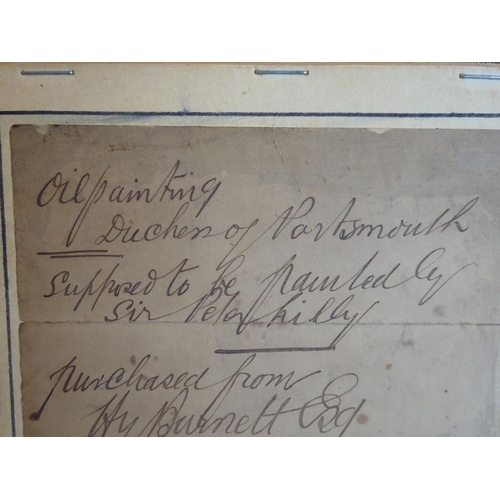 Oil painting
Duchess of Portsmouth
Supposed to be painted by
Sir Peter Lilly
purchased from
Hy Burnett Esq